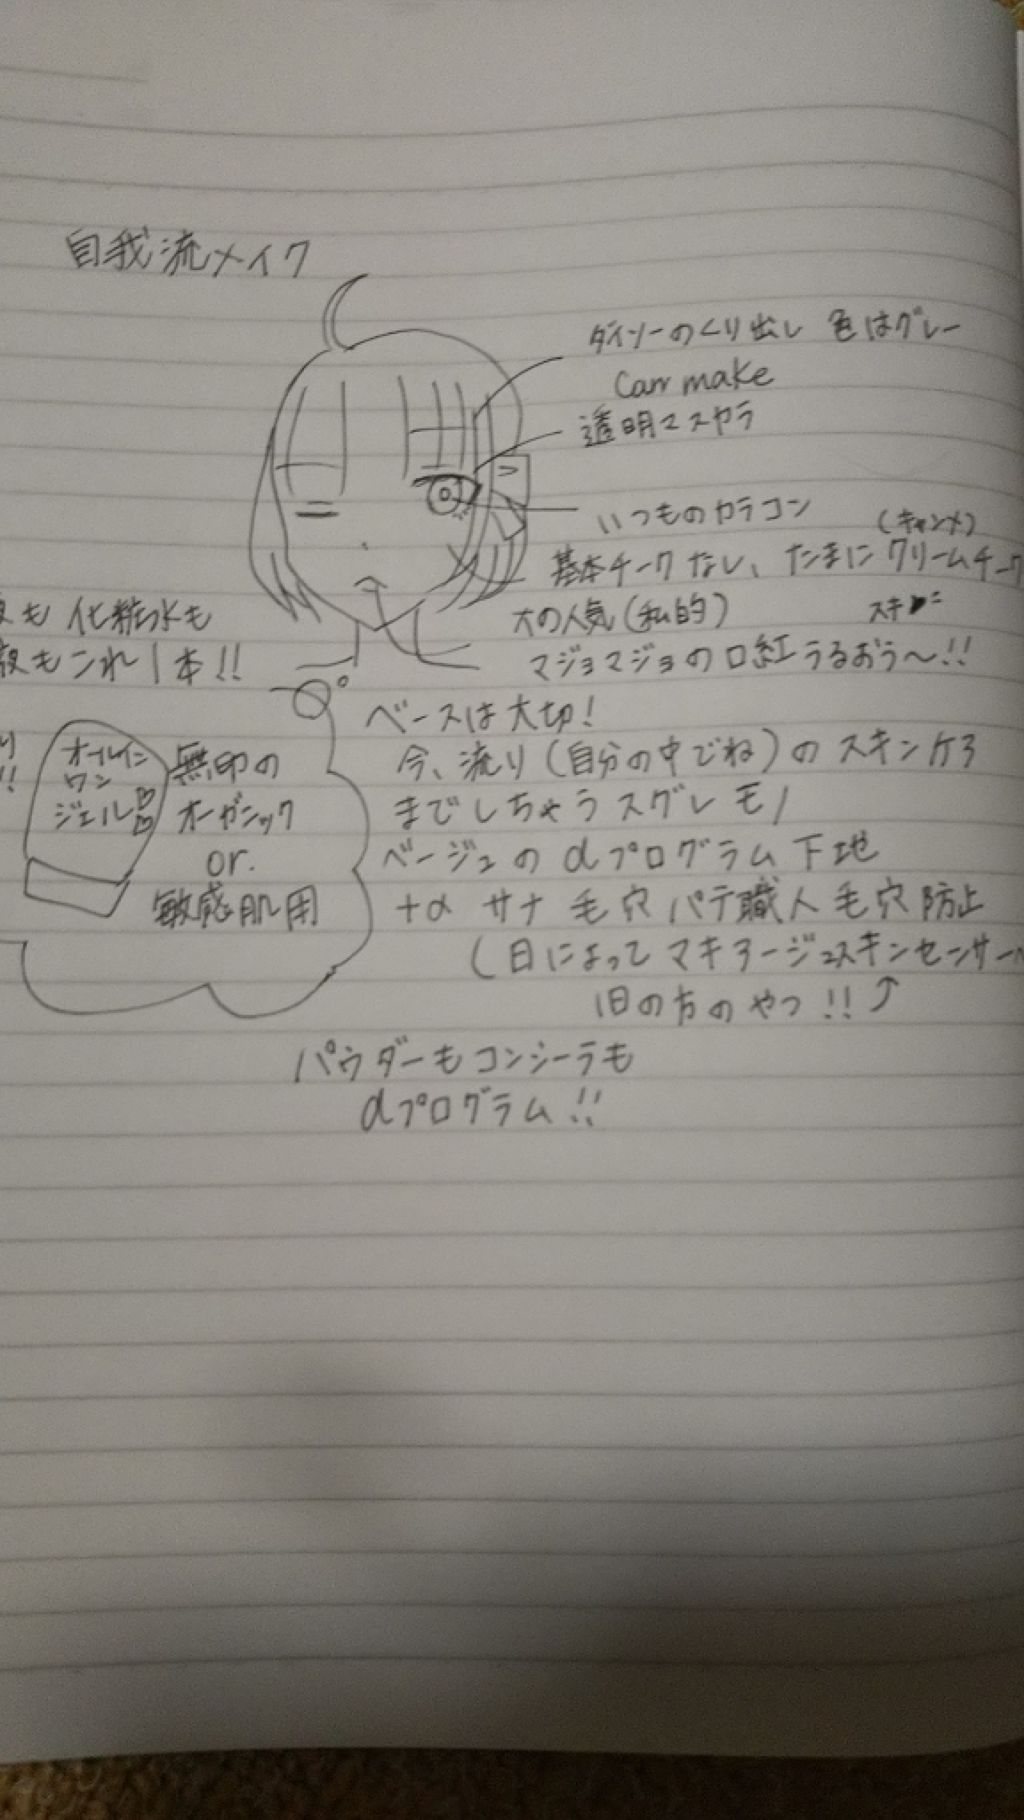 自我流メイク
ダイソーのくり出し 色はグレー
Can make
透明マスカラ
いつものカラコン
(キャンメ)
基本チークなし、たまにクリームチーク
大の人気(私的)
マジョマジョの口紅うるおう〜!!
も 化粧水も
もこれ1本!!
ベースは大切!
今、流り(自分の中でね)のスキンケア
までしちゃうスグレモノ
ベージュのdプログラム下地
+α サナ 毛穴パテ職人毛穴防止
(日によってマキアージュスキンセンサー
旧の方のやつ!!↑
オールイン
ワン
ジェル♡♡
無印の
オーガニック
or.
敏感肌用
パウダーもコンシーラも
dプログラム!!